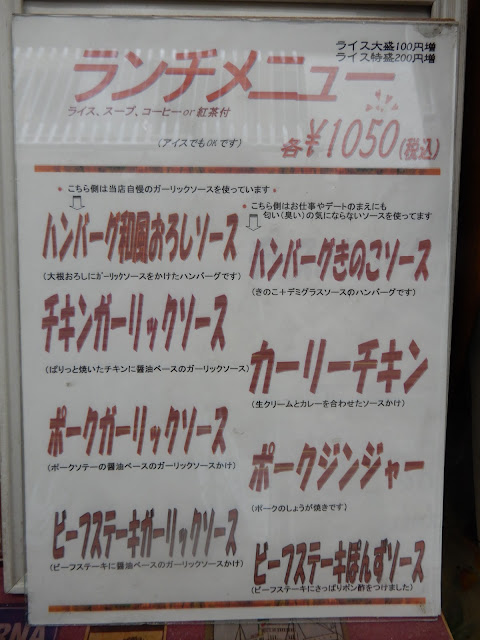 ライス大盛100円増
ライス特盛200円増
ランチメニュー
ライス、スープ、コーヒーor紅茶付
(アイスでもOKです)
各¥1050(税込)
こちら側は当店自慢のガーリックソースを使っています
ハンバーグ和風おろしソース
(大根おろしにガーリックソースをかけたハンバーグです)
チキンガーリックソース
(ぱりっと焼いたチキンに醤油ベースのガーリックソース)
ポークガーリックソース
(ポークソテーの醤油ベースのガーリックソースかけ)
ビーフステーキガーリックソース
(ビーフステーキに醤油ベースのガーリックソースかけ)
こちら側はお仕事やデートのまえにも
匂い(臭い)の気にならないソースを使ってます
ハンバーグきのこソース
(きのこ+デミグラスソースのハンバーグです)
カーリーチキン
(生クリームとカレーを合わせたソースかけ)
ポークジンジャー
(ポークのしょうが焼きです)
ビーフステーキぽんずソース
(ビーフステーキにさっぱりポン酢をつけました)
RNA